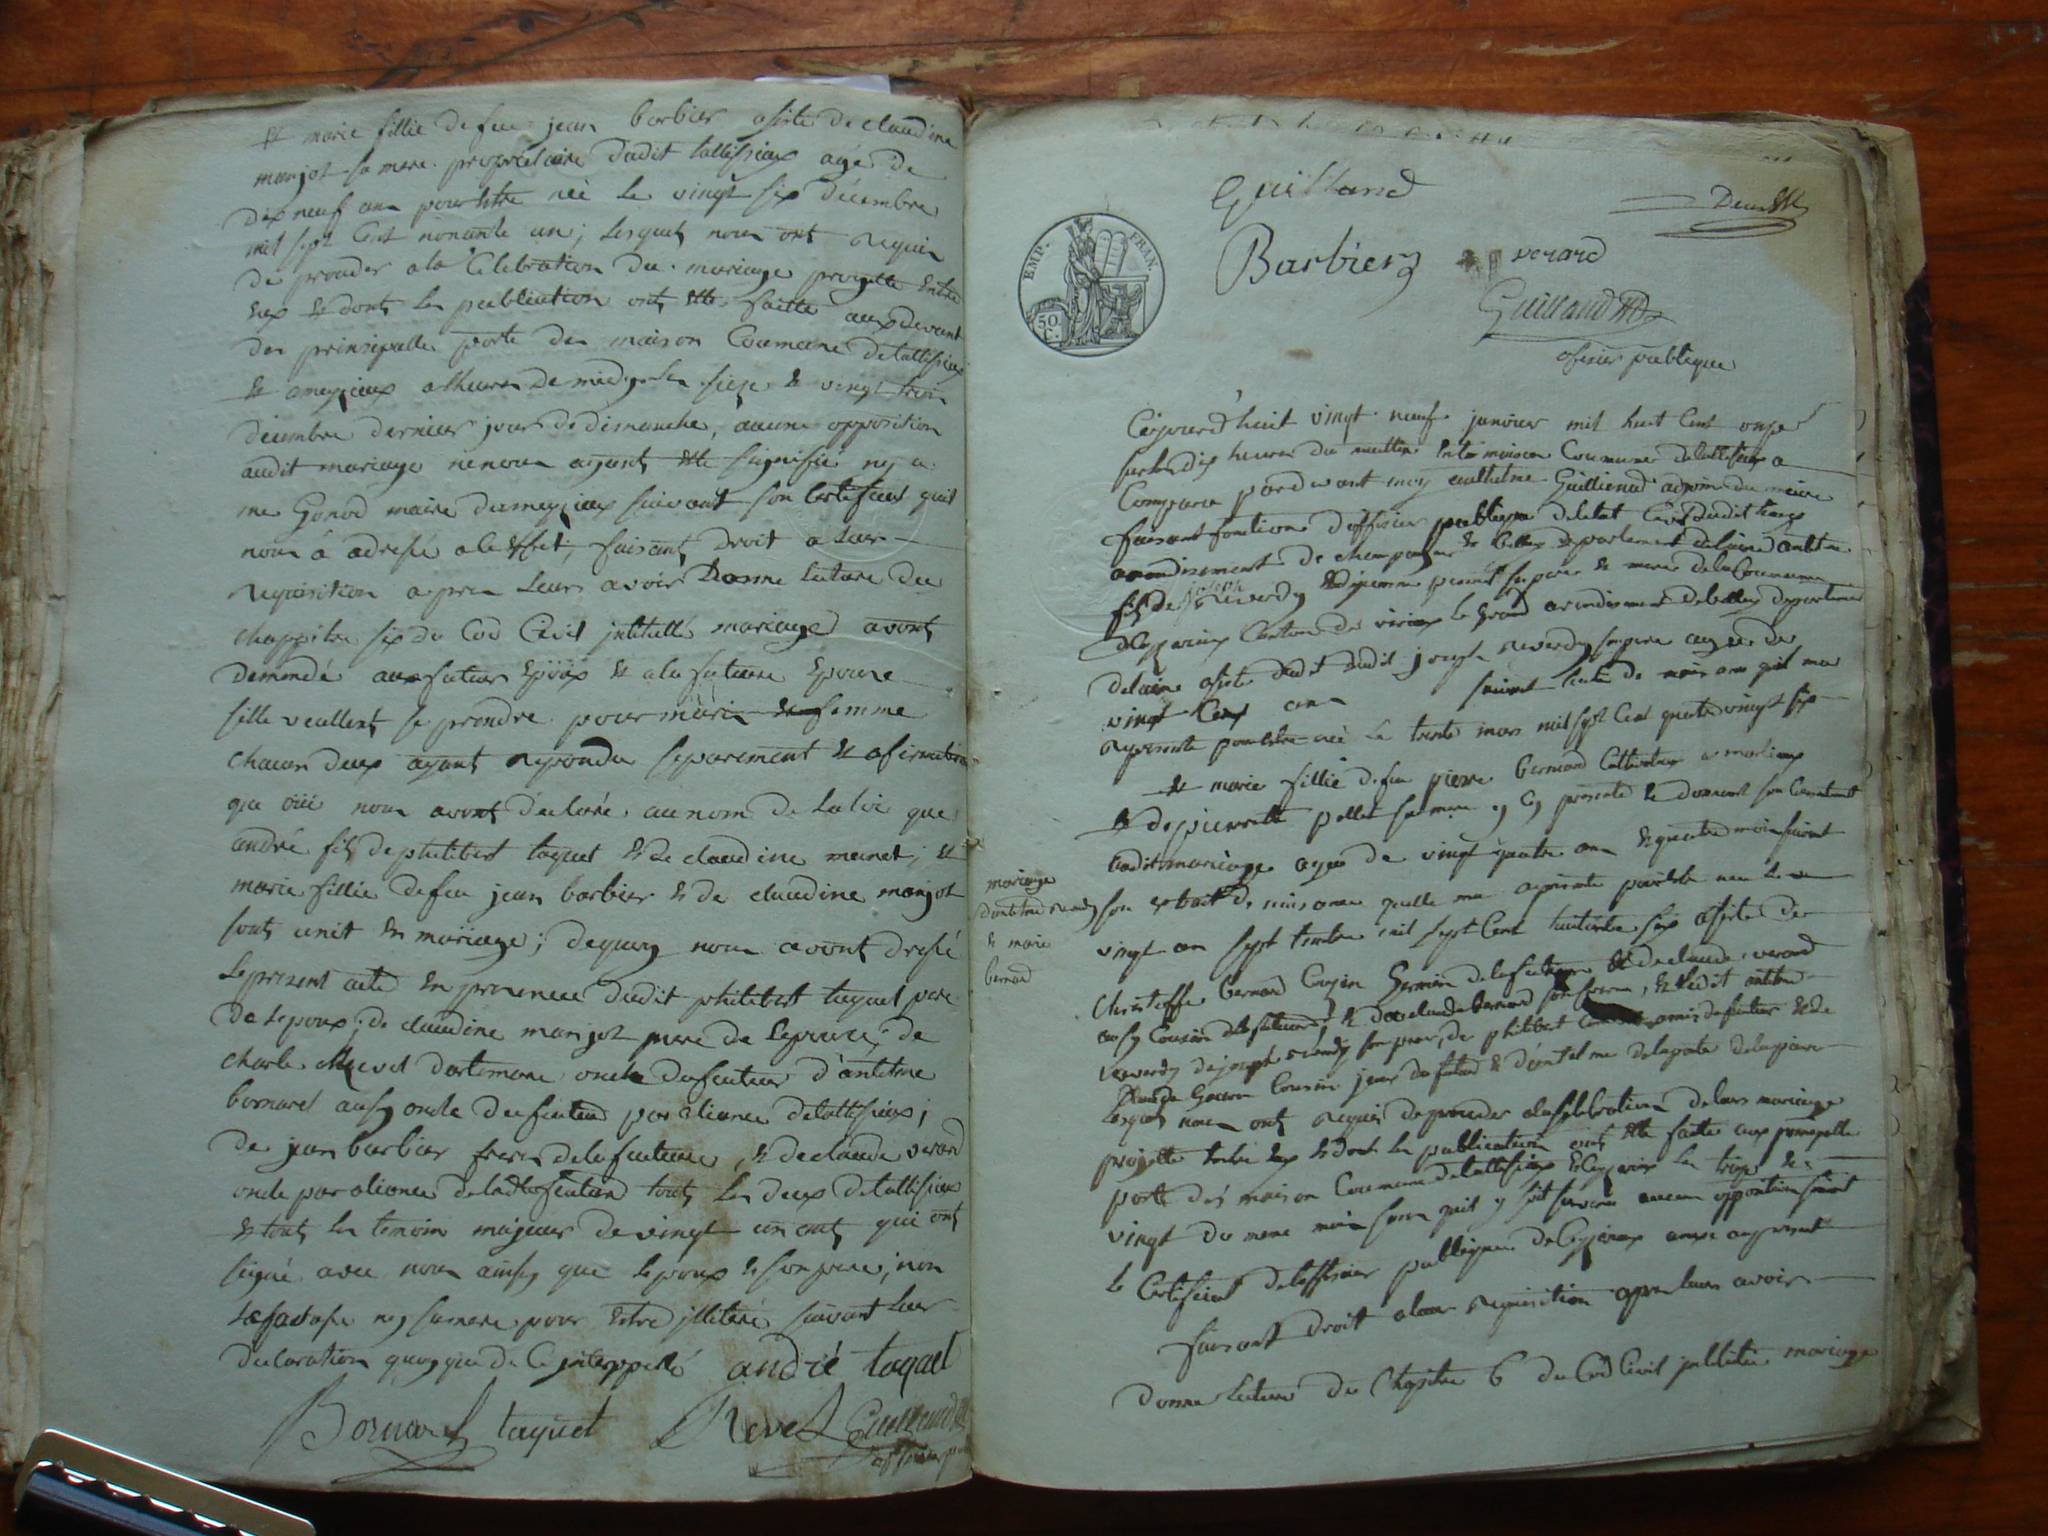 & marie fillie de feu jean barbier asisté de claudine
manjot sa mere propriétaire dudit tallissieux agé de
dix neuf ans pour être née le vingt six décembre
mil sept cent nonante un; lesquels nous ont requis
de proceder a la célébration du mariage projetté entre
eux & dont les publication ont etté faitte au devant
des principalle porte des maison Commune de tallissieux
& ameyzieux a lheure de midy les seize & vingt trois
décembre dernier jours de dimanche, aucune opposition
audit mariage ne nous ayant etté signifié ny a
me Gonod maire dameyzieux suivant son certificat quil
nous a adressé a le effet, faisant droit a leur
requisition apres leurs avoir Donné lecture du
chappitre six du Cod Civil intitullé mariage avons
demandé au futur epoux & a la future epouse
sille veullent se prendre pour mari & femme
chacun deux ayant repondu séparément & afirmative
qu oüi nous avons déclaré au nom de la loi que
andré fils de philibert taquet & de claudine ; &
marie fillie de feu jean barbier & de claudine manjot
sont unit en mariage; dequoy nous avons dressé
le present acte en presence dudit philibert taquet pere
de lepoux; de claudine manjot mere de lepouse; de
charle Revet dartemare oncle du futeur d'antelme
bornard ausy oncle du futeur par aliance de tallissieux;
de jean barbier frere de la future, & de claude verard
oncle par aliance de la future tout les deux de tallissieux
& tout les temoin majeurs de vingt un ans qui ont
signé avec nous ainsy que lepoux & son pere, non
sa mere pour être illitéré suivant leur
declaration quoyque de ce interppellé andré taquet
Bornard taquet Revet Guilland
Guilland
Barbier verard
Guilland
oficier publique
EMP. FRAN.
50 C.
Cejourd'huit vingt neuf janvier mil huit Cent onze
sur les dix heures du mattin en la maison Commune de tallissieux a
Comparu pardevant moy anthelme Guilland adjoint du maire
faisant fonctions d'officier publique de létat Civil dudit lieux
arondisement de champagne & belley département de lain antelme
joseph
fils de Reverdy & present son pere & mere de la Commune
Canton de virieux le Grand arondisement de belley departement
de lain asisté dudit joseph reverdy son pere agé de
vingt ans suivant lacte de naissance quil ma
represente pour être né le trente mars mil sept Cent quatre vingt six
& marie fillie de feu pierre bernard Cultivateur a
& de pierrette pollet sa mere y present & donnant son Consentement
audit mariage agée de vingt quatre ans & quatre mois suivant
mariage
d'antelme reverdy
& marie
bernard
son extrait de naissance quelle ma représenté pour être née le
vingt un septembre mil sept Cent huitante six asisté de
Christoffe bernard Cousin Germain de la future & de claude verard
ausy Cousin de la future; & de claude bernard son frere, & ledit antelme
reverdy de joseph reverdy son pere, de philibert amis du futeur & de
Cousin du futur & d'antelme delaporte
lesquels nous ont requis de proceder a la celebration de leurs mariage
projetté entre eux & dont les publication ont etté faite aux principalle
porte des maison Commune de tallissieux & les treize &
vingt du meme mois sans quil y soit survenu aucun opposition suivant
le Certificat de lofficier publique annexé au present
faisant droit a leur requisition apres leurs avoir
donné lecture du Chapitre 6 du Cod Civil intitulé mariage